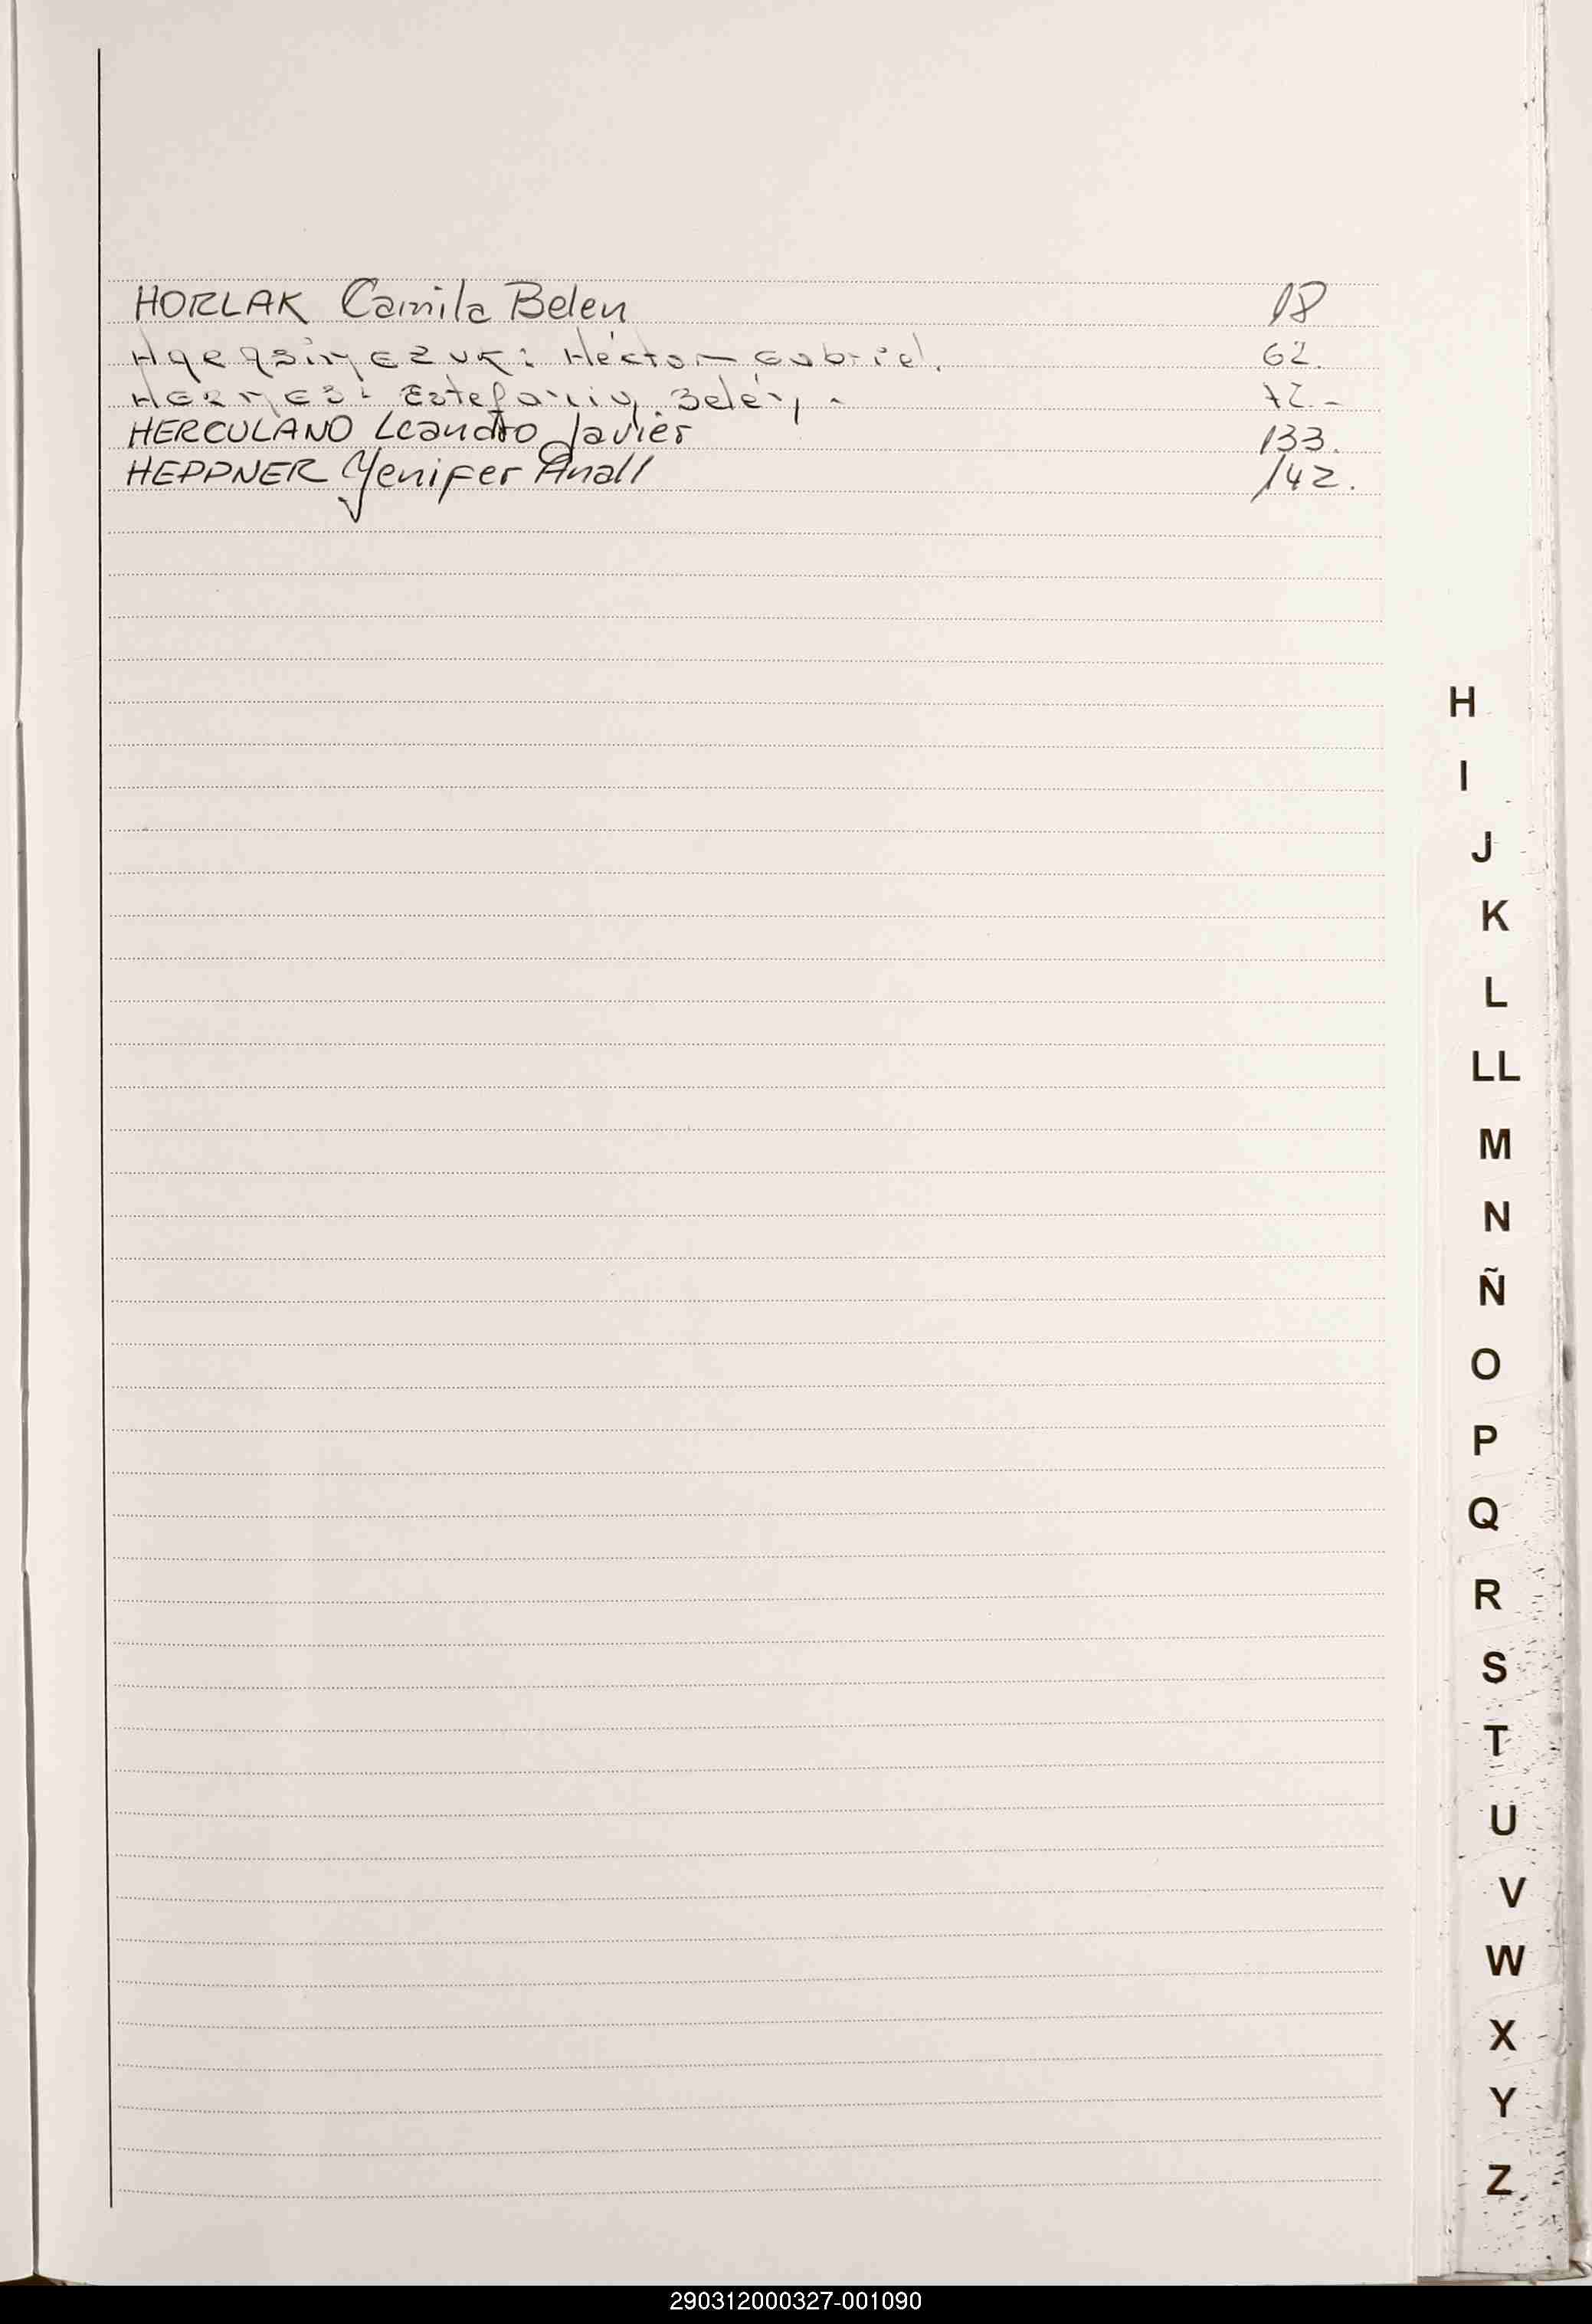 HORLAK Camila Belen 18
HARASIMCZUK: Héctor Gabriel. 62.
HERMES: Estefania Belén. - 72.-
HERCULANO Leandro Javier 133.
HEPPNER Yenifer Anall 142.
H
I
J
K
L
LL
M
N
Ñ
O
P
Q
R
S
T
U
V
W
X
Y
Z
290312000327-001090